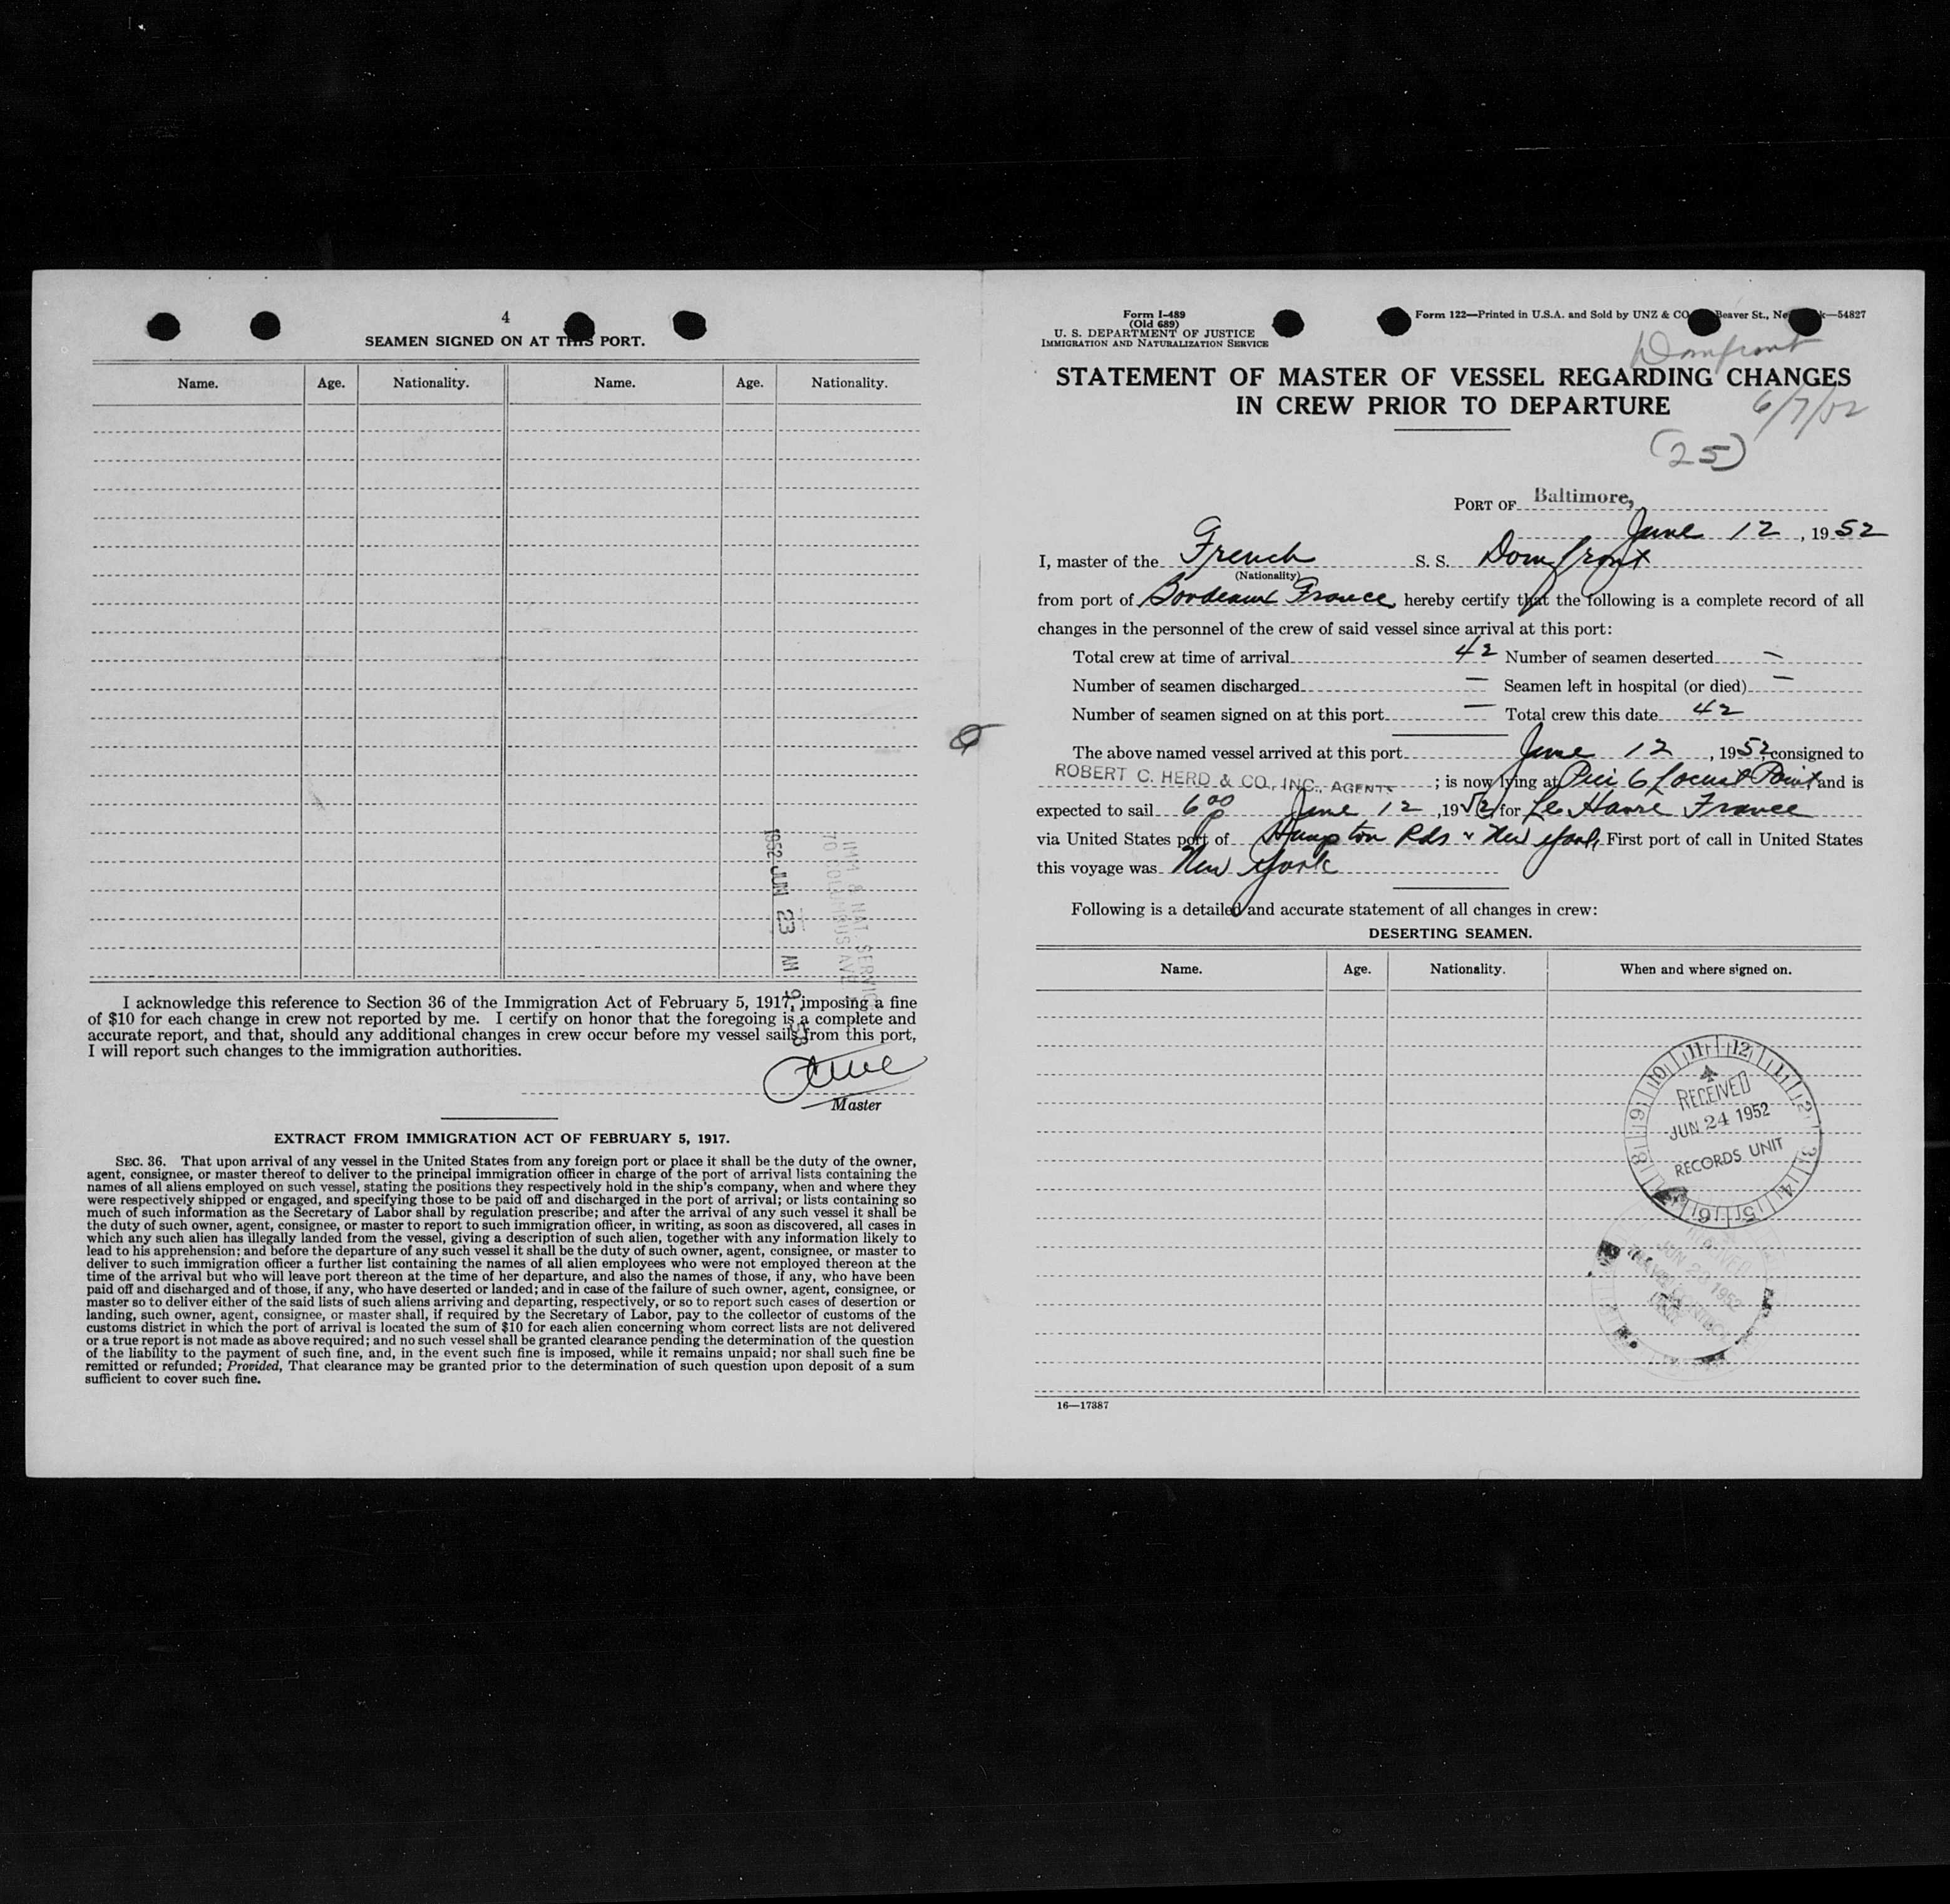 4
SEAMEN SIGNED ON AT THIS PORT.
Name. Age. Nationality. Name. Age. Nationality.
1952 JUN 23 AM 9 53
IMM & NAT. SERVICE
70 COLUMBUS AVE
I acknowledge this reference to Section 36 of the Immigration Act of February 5, 1917, imposing a fine
of $10 for each change in crew not reported by me. I certify on honor that the foregoing is a complete and
accurate report, and that, should any additional changes in crew occur before my vessel sails from this port,
I will report such changes to the immigration authorities.
Master
EXTRACT FROM IMMIGRATION ACT OF FEBRUARY 5, 1917.
SEC. 36. That upon arrival of any vessel in the United States from any foreign port or place it shall be the duty of the owner,
agent, consignee, or master thereof to deliver to the principal immigration officer in charge of the port of arrival lists containing the
names of all aliens employed on such vessel, stating the positions they respectively hold in the ship's company, when and where they
were respectively shipped or engaged, and specifying those to be paid off and discharged in the port of arrival; or lists containing so
much of such information as the Secretary of Labor shall by regulation prescribe; and after the arrival of any such vessel it shall be
the duty of such owner, agent, consignee, or master to report to such immigration officer, in writing, as soon as discovered, all cases in
which any such alien has illegally landed from the vessel, giving a description of such alien, together with any information likely to
lead to his apprehension; and before the departure of any such vessel it shall be the duty of such owner, agent, consignee, or master to
deliver to such immigration officer a further list containing the names of all alien employees who were not employed thereon at the
time of the arrival but who will leave port thereon at the time of her departure, and also the names of those, if any, who have been
paid off and discharged and of those, if any, who have deserted or landed; and in case of the failure of such owner, agent, consignee, or
master so to deliver either of the said lists of such aliens arriving and departing, respectively, or so to report such cases of desertion or
landing, such owner, agent, consignee, or master shall, if required by the Secretary of Labor, pay to the collector of customs of the
customs district in which the port of arrival is located the sum of $10 for each alien concerning whom correct lists are not delivered
or a true report is not made as above required; and no such vessel shall be granted clearance pending the determination of the question
of the liability to the payment of such fine, and, in the event such fine is imposed, while it remains unpaid; nor shall such fine be
remitted or refunded; Provided, That clearance may be granted prior to the determination of such question upon deposit of a sum
sufficient to cover such fine.
Form I-489
(Old 689)
U. S. DEPARTMENT OF JUSTICE
IMMIGRATION AND NATURALIZATION SERVICE
Form 122—Printed in U.S.A. and Sold by UNZ & CO Beaver St., Ne k—54827
Domfront
STATEMENT OF MASTER OF VESSEL REGARDING CHANGES
IN CREW PRIOR TO DEPARTURE
6/7/52
(25)
PORT OF Baltimore,
June 12, 1952
I, master of the French S. S. Domfront
(Nationality)
from port of Bordeaux France, hereby certify that the following is a complete record of all
changes in the personnel of the crew of said vessel since arrival at this port:
Total crew at time of arrival 42 Number of seamen deserted —
Number of seamen discharged — Seamen left in hospital (or died) —
Number of seamen signed on at this port — Total crew this date 42
The above named vessel arrived at this port June 12, 1952, consigned to
ROBERT C. HERD & CO., INC., AGENTS; is now lying at Pier 6 Locust Point and is
expected to sail 6 00 p June 12, 1952 for Le Havre France
via United States port of Hampton Rds & New York, First port of call in United States
this voyage was New York
Following is a detailed and accurate statement of all changes in crew:
DESERTING SEAMEN.
Name. Age. Nationality. When and where signed on.
11 12 1 2 3 4 5 6 8 9 10
RECEIVED
JUN 24 1952
RECORDS UNIT
RECEIVED
JUN 23 1952
16—17387